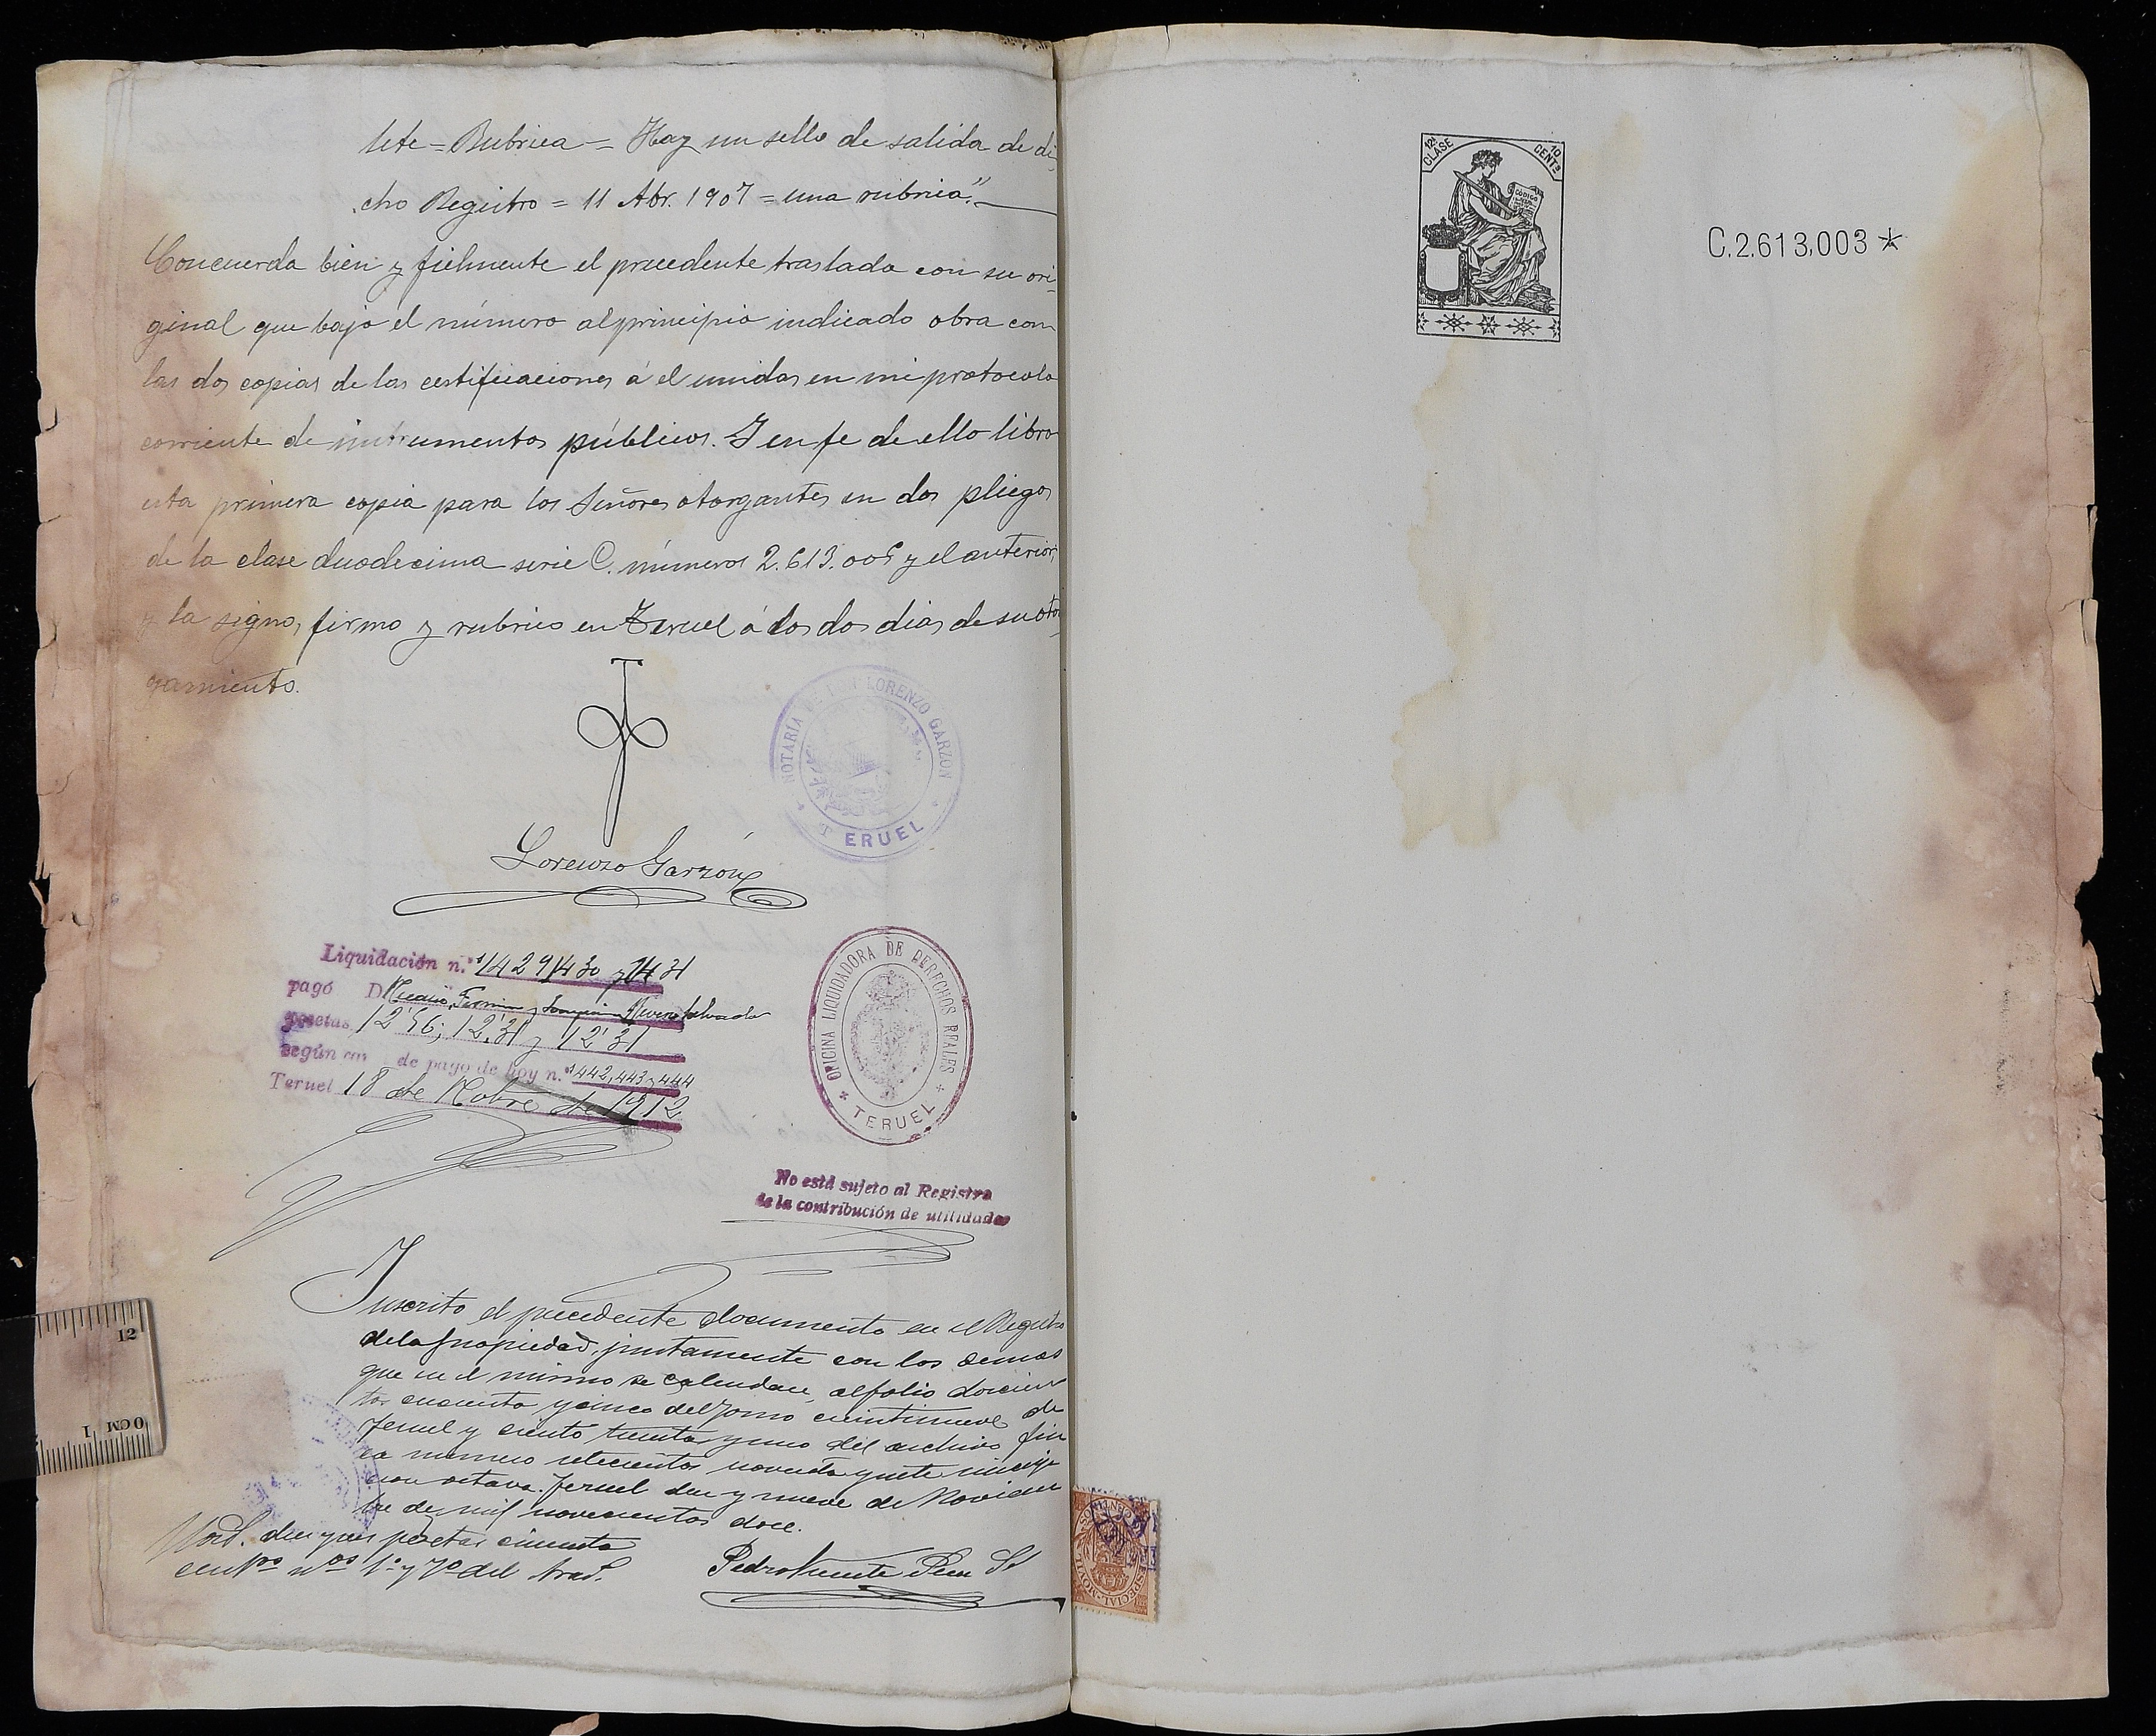 lete = Rubrica = Hay un sello de salida de di
cho Registro = 11 Abr. 1907 = una rubrica".
Concuerda bien y fielmente el precedente traslado con su ori-
ginal que bajo el número al principio indicado obra con
las dos copias de las certificaciones á el unidas en mi protocolo
corriente de instrumentos públicos. Y en fe de ello libro
esta primera copia para los Señores otorgantes en dos pliegos
de la clase duodecima serie C. números 2.613.005 y el anterior,
y la signo, firmo y rubrico en Teruel á los dos dias de su otor
gamiento.
NOTARÍA DE LORENZO GARZON
TERUEL
Lorenzo Garzón
Liquidación n.º 1429, 1430 y 1431
pagó D. Fermin y Joaquin
pesetas 12'56; 12'31 y 12'31
según de pago de hoy n.º 442, 443 y 444
Teruel 18 de Nobre de 1912
OFICINA LIQUIDADORA DE DERECHOS REALES
TERUEL
No está sujeto al Registro
de la contribución de utilidades
Inscrito el precedente documento en el Registro
de la propiedad, juntamente con los demas
que en el mismo se calendan, al folio doscien
tos cincuenta y cinco del tomo veintinueve de
Teruel y ciento treinta y uno del archivo fin
ca numero setecientos noventa y siete inscrip
cion octava. Teruel diez y nueve de Noviem
bre de mil novecientos doce.
Hon.s diez y seis pesetas cincuenta
cent.os n.os 1º y 7º del
Pedro Vicente
12ª CLASE
10 CENT.s
CÓDIGO
C.2.613,003 *
ESPECIAL MOVIL
CENTIMOS
12
0CM 1